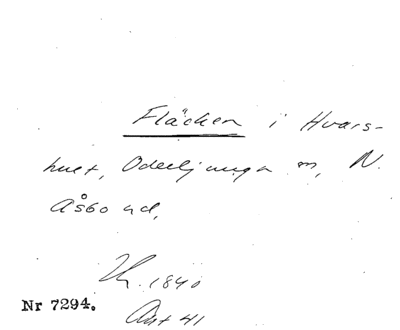 Fläcken i Hvars-
hult, Oderljunga sn, N.
Åsbo hd,
1840
Nr 7294.
Ant 41